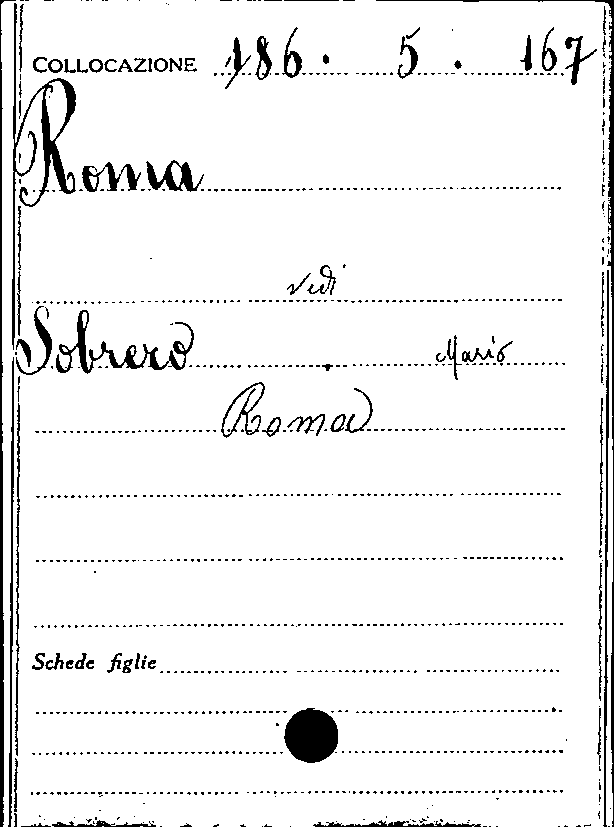 COLLOCAZIONE 186. 5. 167
Roma
vedi
Sobrero. Mario
Roma
Schede figlie